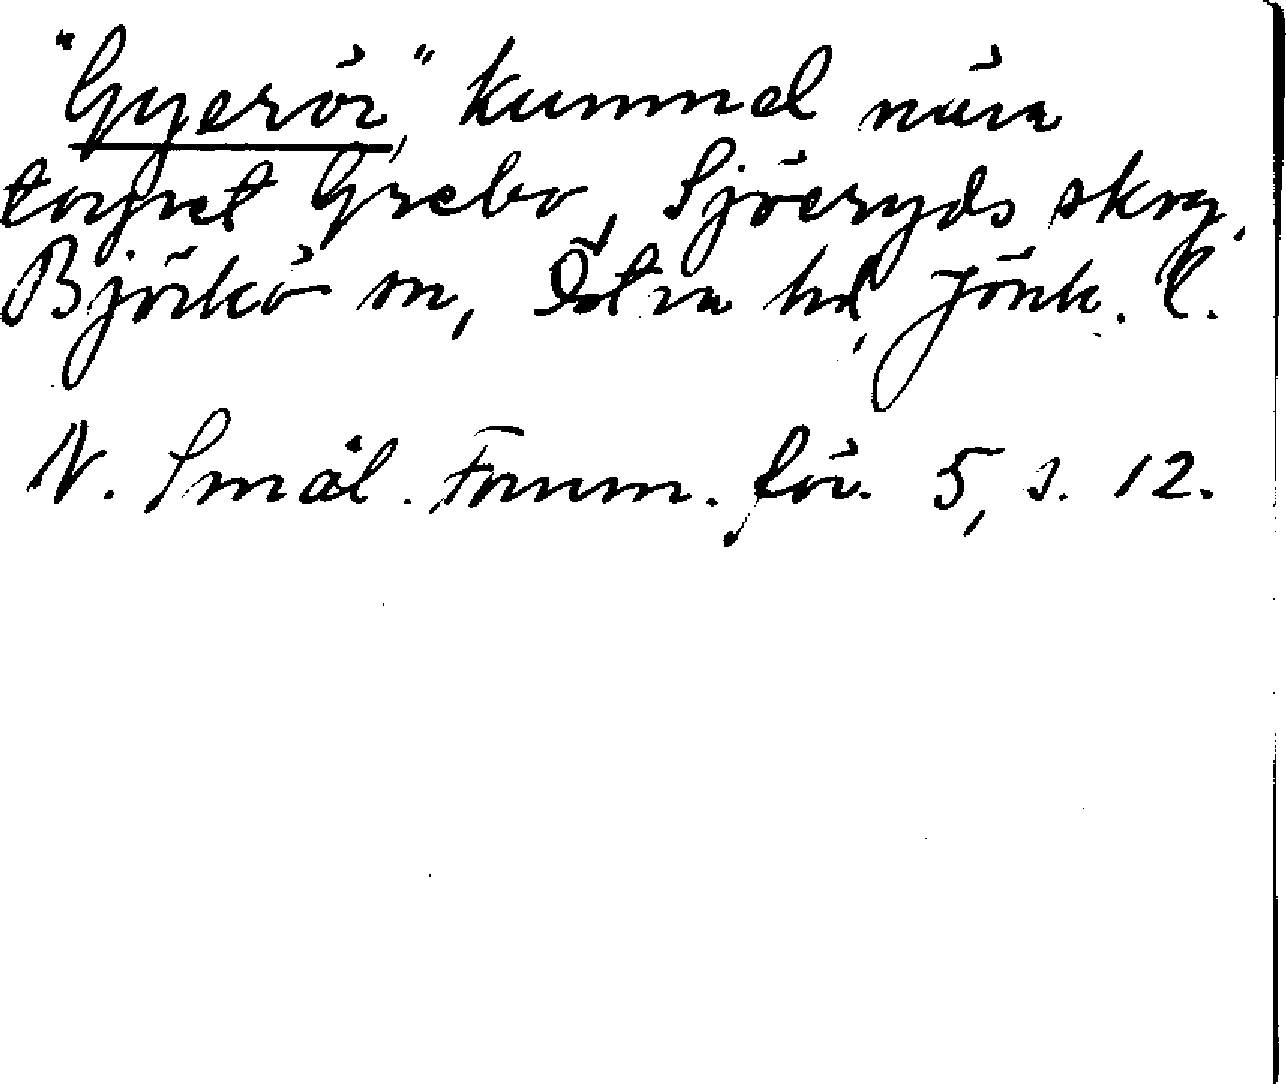 "Gyerör", kummel nära
torpet Grebo, Sjöeryds skog,
Björkö sn, Östra hd, Jönk. l.
N. Smål. Fornm. för. 5, s. 12.